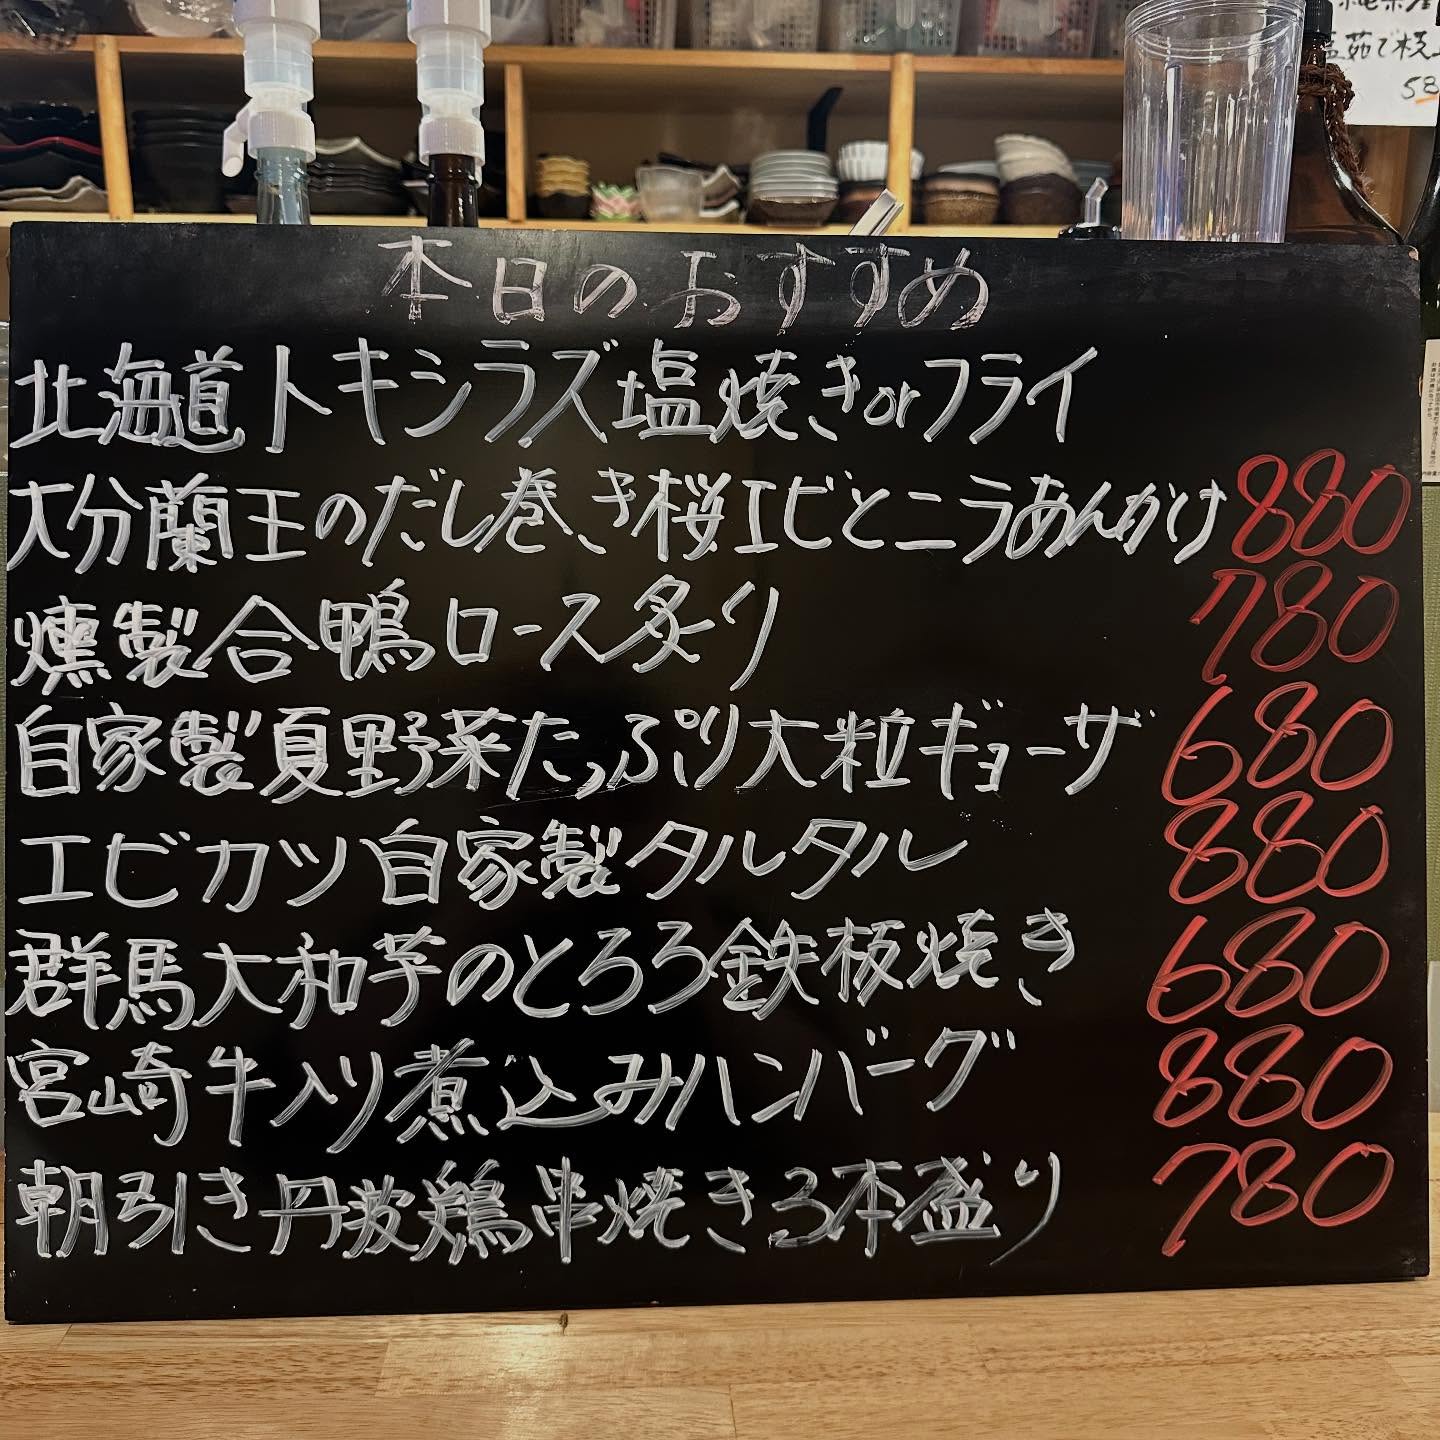 塩茹で枝
58
本日のおすすめ
北海道トキシラズ塩焼きorフライ
大分蘭王のだし巻き桜エビとニラあんかけ 880
燻製合鴨ロース炙り 780
自家製夏野菜たっぷり大粒ギョーザ 680
エビカツ自家製タルタル 880
群馬大和芋のとろろ鉄板焼き 680
宮崎牛入り煮込みハンバーグ 880
朝引き丹波鶏串焼き3本盛り 780